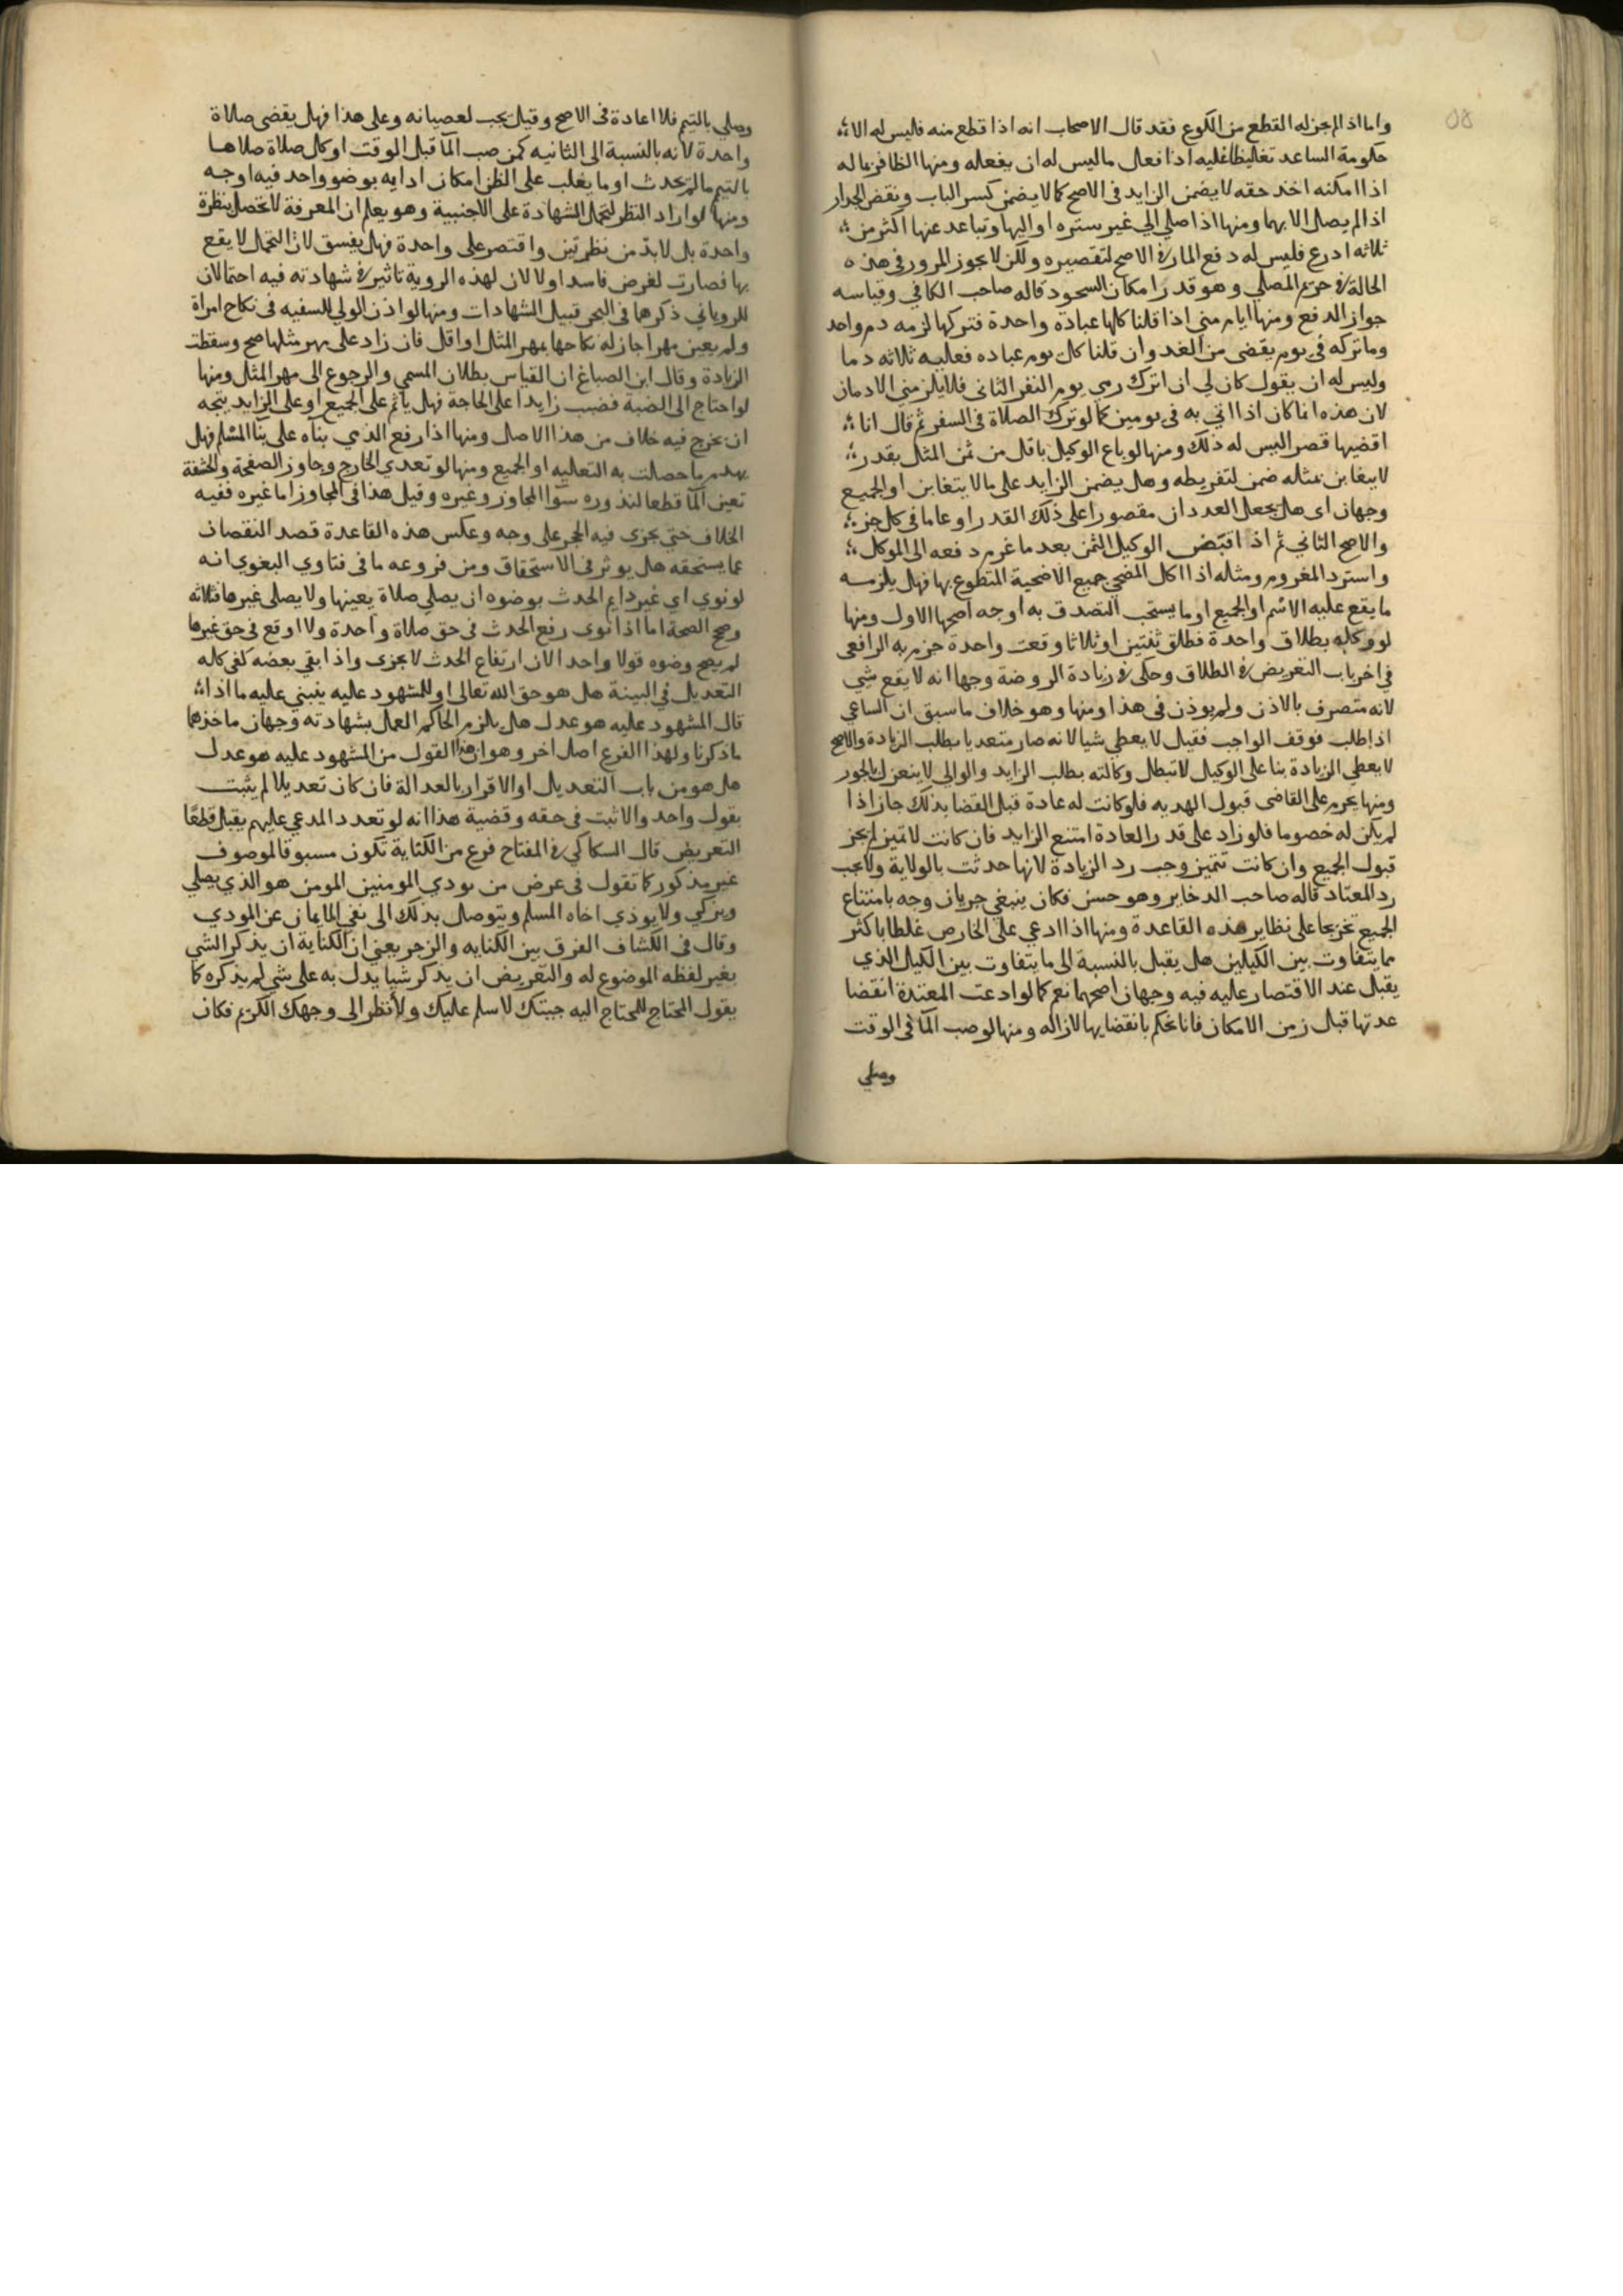 ٥٨
واما اذا لم يجز له القطع من الكوع فقد قال الاصحاب انه اذا قطع منه فليس له الا
حكومة الساعد تغليظا عليه اذا فعل ما ليس له ان يفعله ومنها الظافر بماله
اذا امكنه اخذ حقه لا يضمن الزايد في الاصح كما لا يضمن كسر الباب ونقض الجدار
اذا لم يصل الا بهما ومنها اذا صلي الي غير ستره او اليها وتباعد عنها اكثر من
ثلاثه ادرع فليس له دفع المار في الاصح لتقصيره ولكن لا يجوز المرور في هذه
الحالة في حريم المصلي وهو قدر امكان السجود قاله صاحب الكافي وقياسه
جواز الدفع ومنها ايام مني اذا قلنا كلها عباده واحدة فتركها لزمه دم واحد
وما تركه في يوم يقضى من الغد وان قلنا كل يوم عباده فعليه ثلاثه دما
وليس له ان يقول كان لي ان اترك رمي يوم النفر الثاني فلا يلزمني الا دمان
لان هذه انما كان اذا اتي به في يومين كما لو ترك الصلاة في السفر ثم قال انا
اقضيها قصر اليس له ذلك ومنها لو باع الوكيل باقل من ثمن المثل بقدر
لا يتغابن بمثله ضمن لتفريطه وهل يضمن الزايد على ما لا يتغابن او الجميع
وجهان اى هل يجعل العددان مقصورا على ذلك القدر او عاما في كل جز
والاصح الثاني ثم اذا قبض الوكيل الثمن بعد ما غرم دفعه الى الموكل
واسترد المغروم ومثله اذا اكل المضحي جميع الاضحية المتطوع بها فهل يلزمه
ما يقع عليه الاسم او الجميع او ما يستحب التصدق به اوجه اصحها الاول ومنها
لو وكله بطلاق واحدة فطلق ثنتين او ثلاثا وقعت واحدة جزم به الرافعى
في اخر باب التعريض في الطلاق وحكى في زيادة الروضة وجها انه لا يقع شي
لانه متصرف بالاذن ولم يوذن في هذا ومنها وهو خلاف ما سبق ان الساعي
اذا طلب فوقف الواجب فقيل لا يعطي شيا لانه صار متعديا بطلب الزيادة والاصح
لا يعطي الزيادة بنا على الوكيل لا تبطل وكالته بطلب الزايد والوالي لا ينعزل بالجور
ومنها يحرم على القاضى قبول الهديه فلو كانت له عادة قبل القضا بذلك جاز اذا
لم يكن له خصوما فلو زاد على قدر العادة امتنع الزايد فان كانت لا تميز لم يجز
قبول الجميع وان كانت تتميز وجب رد الزيادة لانها حدثت بالولاية ولا يجب
رد المعتاد قاله صاحب الدخاير وهو حسن فكان ينبغي جريان وجه بامتناع
الجميع تخريجا على نظاير هذه القاعدة ومنها اذا ادعي على الخارص غلطا باكثر
مما يتفاوت بين الكيلين هل يقبل بالنسبة الى ما يتفاوت بين الكيل الذي
يقبل عند الاقتصار عليه فيه وجهان اصحهما نعم كما لو ادعت المعتدة انقضا
عدتها قبل زمن الامكان فانا نحكم بانقضايها لازاله ومنها لو صب الما في الوقت
وصلي
وصلي بالتيمم فلا اعادة في الاصح وقيل يجب لعصيانه وعلى هذا فهل يقضى صلاة
واحدة لانه بالنسبة الى الثانيه كمن صب الما قبل الوقت او كل صلاة صلاها
بالتيمم ما لم يحدث او ما يغلب على الظن امكان ادايه بوضو واحد فيه اوجه
ومنها لو اراد النظر لتحمل الشهادة على الاجنبية وهو يعلم ان المعرفة لا تحصل بنظرة
واحدة بل لا بد من نظرتين واقتصر على واحدة فهل يفسق لان التحمل لا يقع
بها فصارت لغرض فاسد او لا لان لهذه الروية تاثير في شهادته فيه احتمالان
للروياني ذكرهما في البحر قبيل الشهادات ومنها لو اذن الولي للسفيه في نكاح امراة
ولم يعين مهرا جاز له نكاحها بمهر المثل او اقل فان زاد على مهر مثلها صح وسقطت
الزيادة وقال ابن الصباغ ان القياس بطلان المسمي والرجوع الى مهر المثل ومنها
لو احتاج الى الضبة فضبب زايدا على الحاجة فهل ياثم على الجميع او على الزايد يتجه
ان يخرج فيه خلاف من هذا الاصل ومنها اذا رفع الذمي بناه على بنا المسلم فهل
يهدم ما حصلت به التعليه او الجميع ومنها لو تعدي الخارج وجاوز الصفحة والحشفة
تعين الما قطعا لندوره سوا المجاوز وغيره وقيل هذا في المجاوز اما غيره ففيه
الخلاف حتي يجزى فيه الحجر على وجه وعكس هذه القاعدة قصد النقصان
عما يستحقه هل يوثر في الاستحقاق ومن فروعه ما في فتاوي البغوي انه
لو نوي اي غير دايم الحدث بوضوه ان يصلي صلاة بعينها ولا يصلى غيرها فثلاثه
وصح الصحة اما اذا نوى رفع الحدث في حق صلاة واحدة ولا ارفع في حق غيرها
لم يصح وضوه قولا واحد الان ارتفاع الحدث لا يجزى واذا بقي بعضه كفي كله
التعديل في البينة هل هو حق الله تعالى او للمشهود عليه ينبني عليه ما اذا
قال المشهود عليه هو عدل هل يلزم الحاكم العمل بشهادته وجهان ماخذهما
ما ذكرنا ولهذا الفرع اصل اخر وهو ان هذا القول من المشهود عليه هو عدل
هل هو من باب التعديل او الاقرار بالعدالة فان كان تعديلا لم يثبت
بقول واحد والا ثبت في حقه وقضية هذا انه لو تعدد المدعي عليهم يقبل قطعا
التعريض قال السكاكي في المفتاح فرع من الكناية تكون مسبوقا لموصوف
غير مذكور كما تقول في عرض من يودي المومنين المومن هو الذي يصلي
ويزكي ولا يوذي اخاه المسلم ويتوصل بذلك الى نفي الايمان عن المودي
وقال في الكشاف الفرق بين الكنايه والزجر يعني ان الكناية ان يذكر الشي
بغير لفظه الموضوع له والتعريض ان يذكر شيا يدل به على شي لم يذكره كما
يقول المحتاج للمحتاج اليه جيتك لاسلم عليك ولانظر الى وجهك الكريم فكان